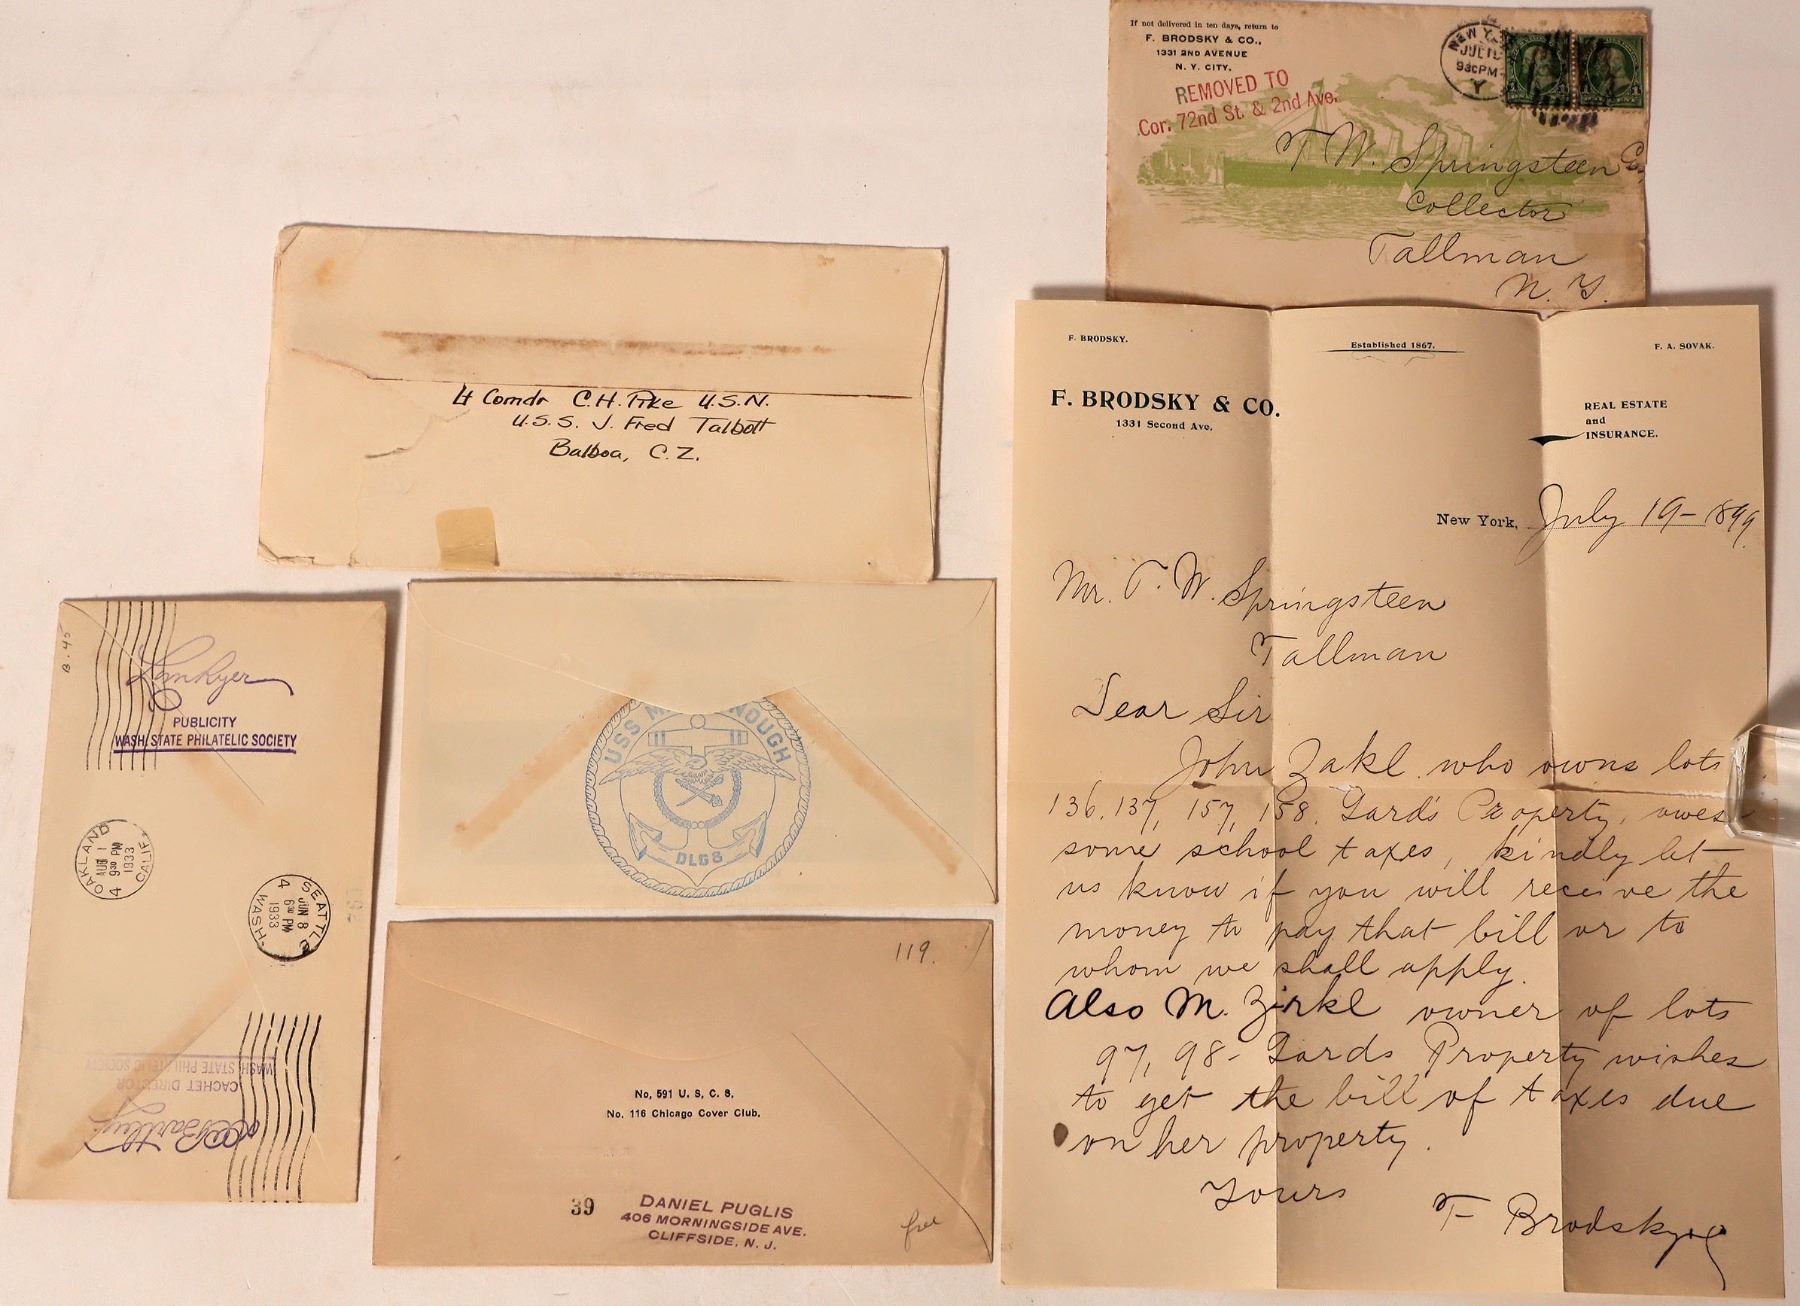 If not delivered in ten days, return to
F. BRODSKY & CO.,
1331 2ND AVENUE
N. Y. CITY.
REMOVED TO
Cor. 72nd St. & 2nd Ave.
NEW Y.
JUL 19
930PM
Y
T. W. Springsteen
Collector
Tallman
N. Y.
Lt Comdr C. H. Pike U.S.N.
U.S.S. J. Fred Talbott
Balboa, C. Z.
F. BRODSKY.
Established 1867.
F. A. SOVAK.
F. BRODSKY & CO.
1331 Second Ave.
REAL ESTATE
and
INSURANCE.
New York, July 19-1899
Mr. T. W. Springsteen
Tallman
Dear Sir
John Zakl who owns lots
136, 137, 157, 158, Property, owes
some school taxes, kindly let
us know if you will receive the
money to pay that bill or to
whom we shall apply.
Also M. Zirkl owner of lots
97, 98 - Property wishes
to get the bill of taxes due
on her property.
Yours F Brodsky
B-45
PUBLICITY
WASH. STATE PHILATELIC SOCIETY
OAKLAND CALIF.
JUN 1
9 PM
1933
4
SEATTLE WASH.
JUN 8
6 PM
1933
4
WASH. STATE PHILATELIC SOCIETY
CACHET DIRECTOR
Bartley
USS M NOUGH
DLG8
119.
No. 591 U. S. C. S.
No. 116 Chicago Cover Club.
39
DANIEL PUGLIS
406 MORNINGSIDE AVE.
CLIFFSIDE, N. J.
free